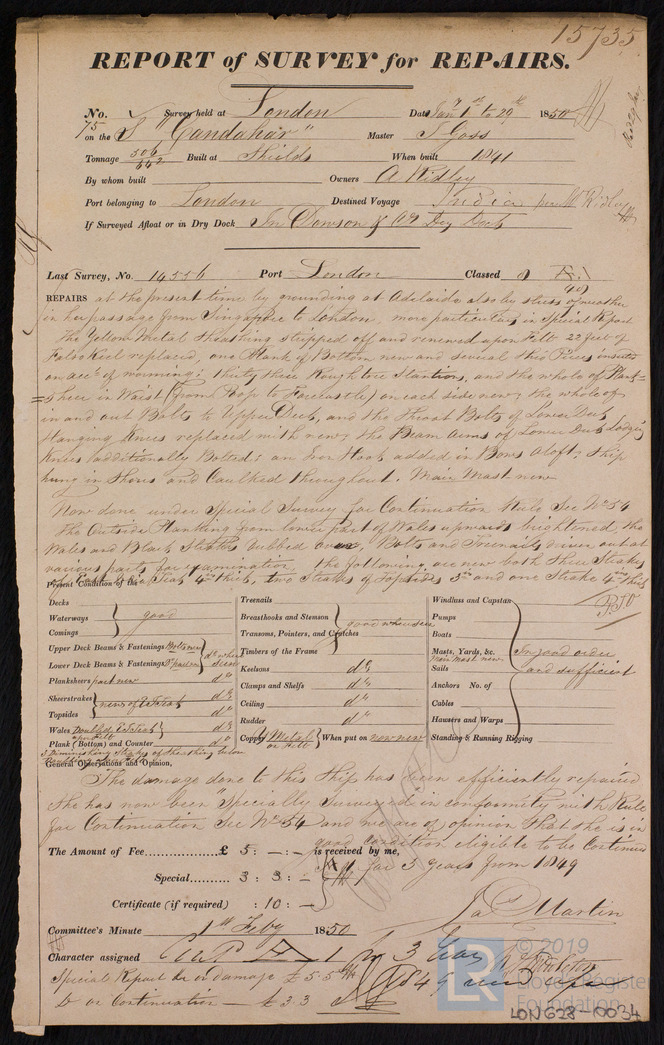 15735
REPORT of SURVEY for REPAIRS.
No. 75 Survey held at London Date Jany 1st to 29th 1850
on the S "Candahar" Master J Goss
Tonnage 506 642 Built at Shields When built 1841
By whom built Owners A Ridley
Port belonging to London Destined Voyage India
If Surveyed Afloat or in Dry Dock In Dowson & Co Dry Dock
Last Survey, No. 14556 Port London Classed
REPAIRS at the present time by grounding at Adelaide also by stress of weather
in her passage from Singapore to London, more particulars in Special Report
The Yellow Metal Sheathing stripped off and renewed upon Felt 22 feet of
False Keel replaced, one Plank of Bottom new and several thin Pieces inserted
on acct of worming; thirty three Roughtree Stantions, and the whole of Plank=
=Sheer in Waist (from Poop to Forecastle) on each side new; the whole of
in and out Bolts to Upper Deck, and the throat Bolts of Lower Deck
Hanging Knees replaced with new; the Beam Arms of Lower Deck Lodging
Knees additionally Bolted; an Iron Hook added in Bows Aloft; Ship
hung in Shores and Caulked throughout. Main Mast new
Now done under Special Survey for Continuation Rule Sec No 54
The Outside Planking from lower part of Wales upwards brightened, the
Wales and Black Strakes dubbed, Bolts and Treenails driven out at
various parts for examination, the following are new both Sheer Strakes
of East India Teak 4 in thick, two Strakes of topsides 3 in and one Strake 4 in thick
Present Condition of the
PTO
Decks
Waterways good
Comings
Upper Deck Beams & Fastenings Bolts new
Lower Deck Beams & Fastenings Do part new
Planksheers part new do
Sheerstrakes new of E I Teak do
Topsides do
Wales Doubled E I Teak do
Plank (Bottom) and Counter do
Treenails
Breasthooks and Stemson good where seen
Transoms, Pointers, and Crutches
Timbers of the Frame
Keelsons do
Clamps and Shelfs do
Ceiling do
Rudder do
Copper Y Metal on Felt When put on now new
Windlass and Capstan
Pumps
Boats
Masts, Yards, &c. Main Mast new In good order
Sails and sufficient
Anchors No. of
Cables
Hawsers and Warps
Standing & Running Rigging
General Observations and Opinion,
The damage done to this Ship has been efficiently repaired
She has now been Specially Surveyed in conformity with Rule
for Continuation Sec No 54 and we are of opinion that she is in
good condition eligible to be Continued
A1 for 3 Years from 1849
The Amount of Fee............... £ 5 : – : – is received by me,
Special......... 3 : 3 : –
Certificate (if required) : 10 : –
Jas Martin
Committee's Minute 1st Feby 1850
Character assigned Cont A 1 for 3 Years
Special Report for damage £5.5
Do on Continuation – £3.3
© 2019
LR
Lloyd's Register
Foundation
LON628-0034